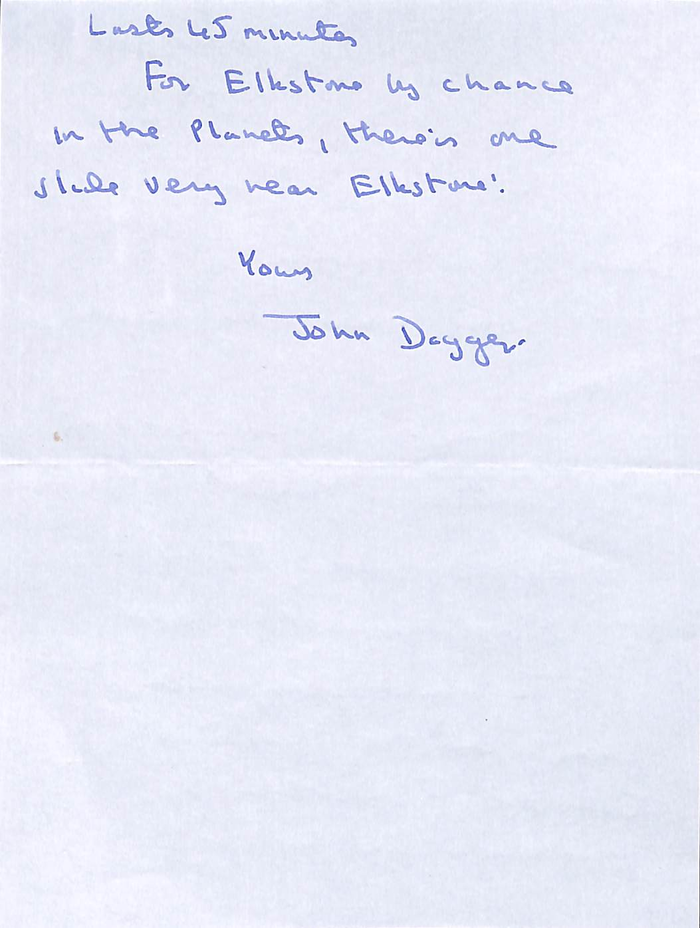 Lasts 45 minutes
For Elkstone by chance
in the Planets, there is one
slide very near Elkstone!
Yours
John Dagger.